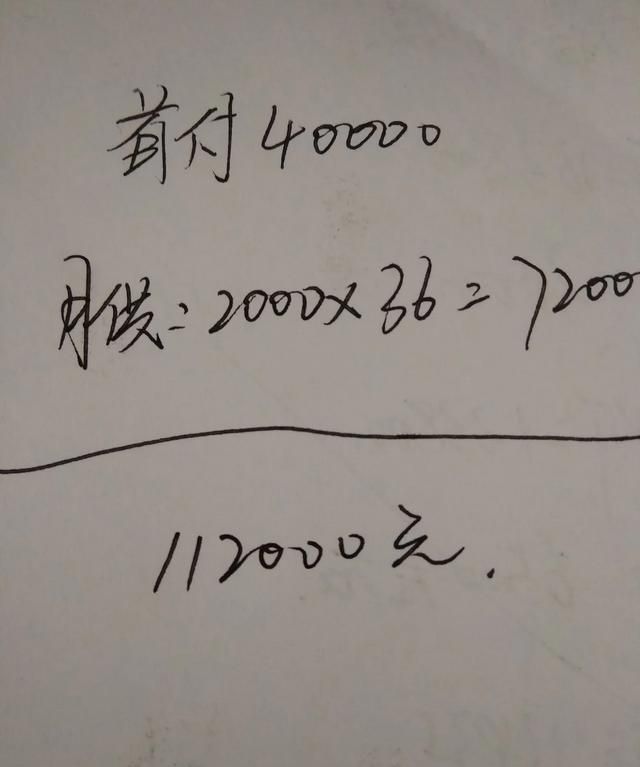 首付40000
月供:2000×36=7200
112000元.